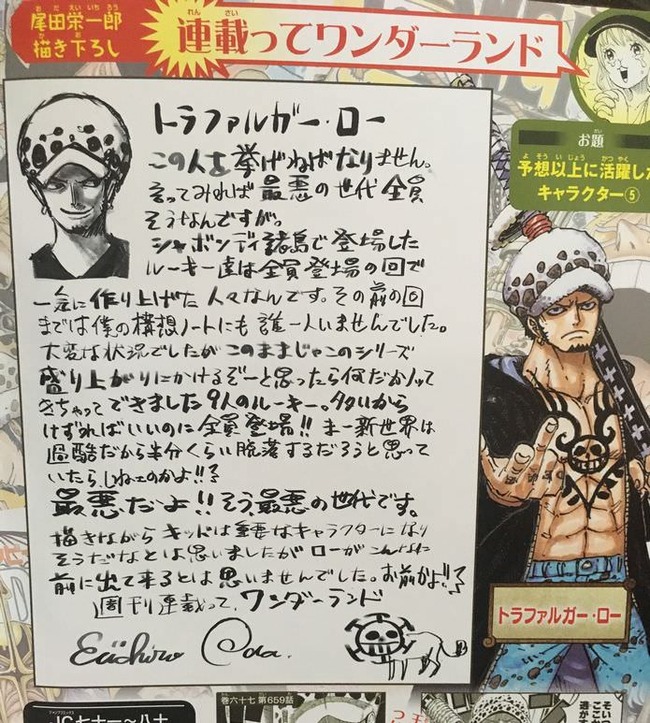 尾田栄一郎
描き下ろし
連載ってワンダーランド
お題
予想以上に活躍した
キャラクター⑤
トラファルガー・ロー
この人を挙げねばなりません。
言ってみれば最悪の世代全員
そうなんですが。
シャボンディ諸島で登場した
ルーキー達は全員登場の回で
一気に作り上げた人々なんです。その前の回
までは僕の構想ノートにも誰一人いませんでした。
大変な状況でしたがこのままじゃこのシリーズ
盛り上がりにかけるぞーと思ったら何だかノッて
きちゃってできました9人のルーキー。多いから
けずればいいのに全員登場!!まー新世界は
過酷だから半分くらい脱落するだろうと思って
いたら、しねェのかよ!!?
最悪だよ!!そう最悪の世代です。
描きながらキッドは重要なキャラクターになり
そうだなとは思いましたがローがこんなに
前に出て来るとは思いませんでした。お前かよ!!?
週刊連載って、ワンダーランド
Eiichiro Oda.
トラファルガー・ロー
JC七十一〜八十
巻六十七 第659話